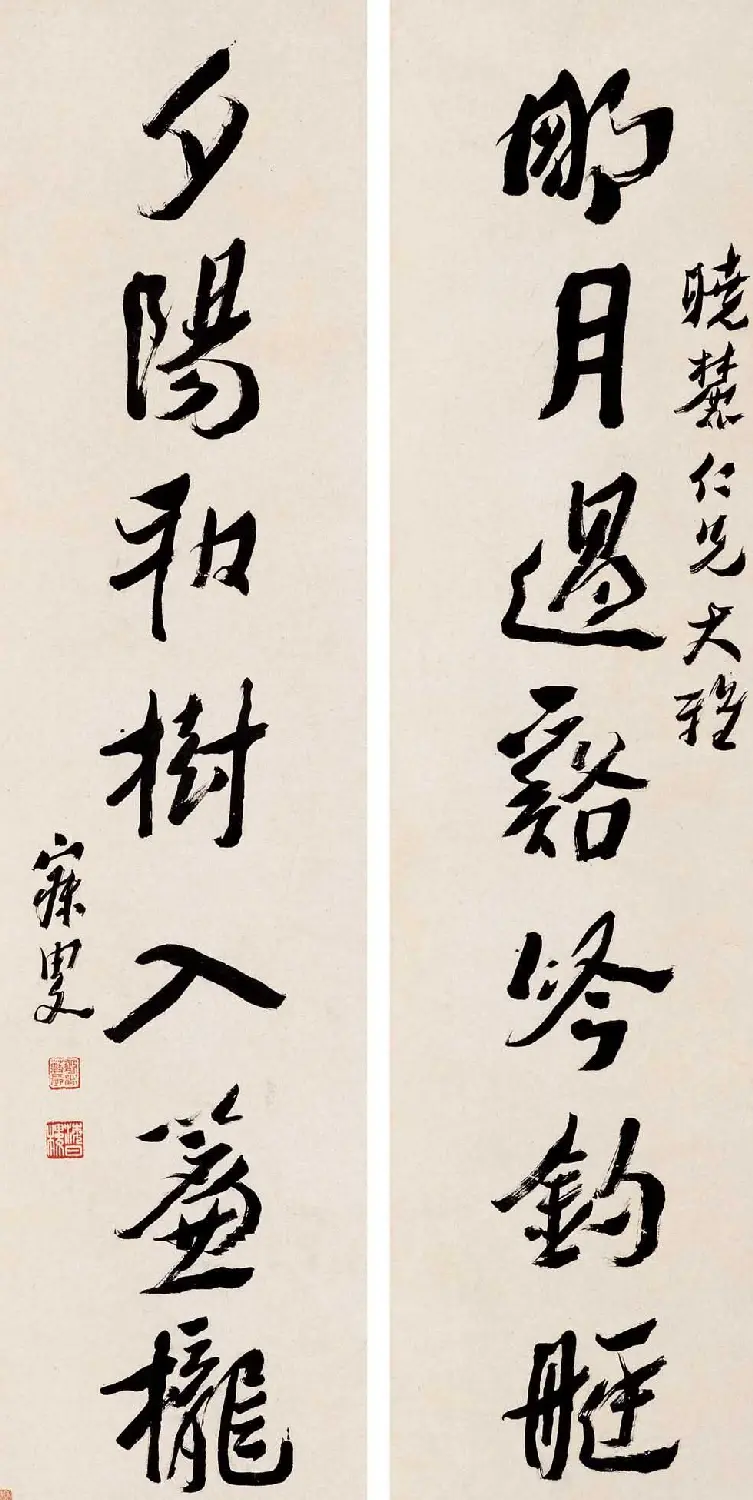 曉麓仁兄大雅
明月過谿吟釣艇
夕陽和樹入簾櫳
寐叟